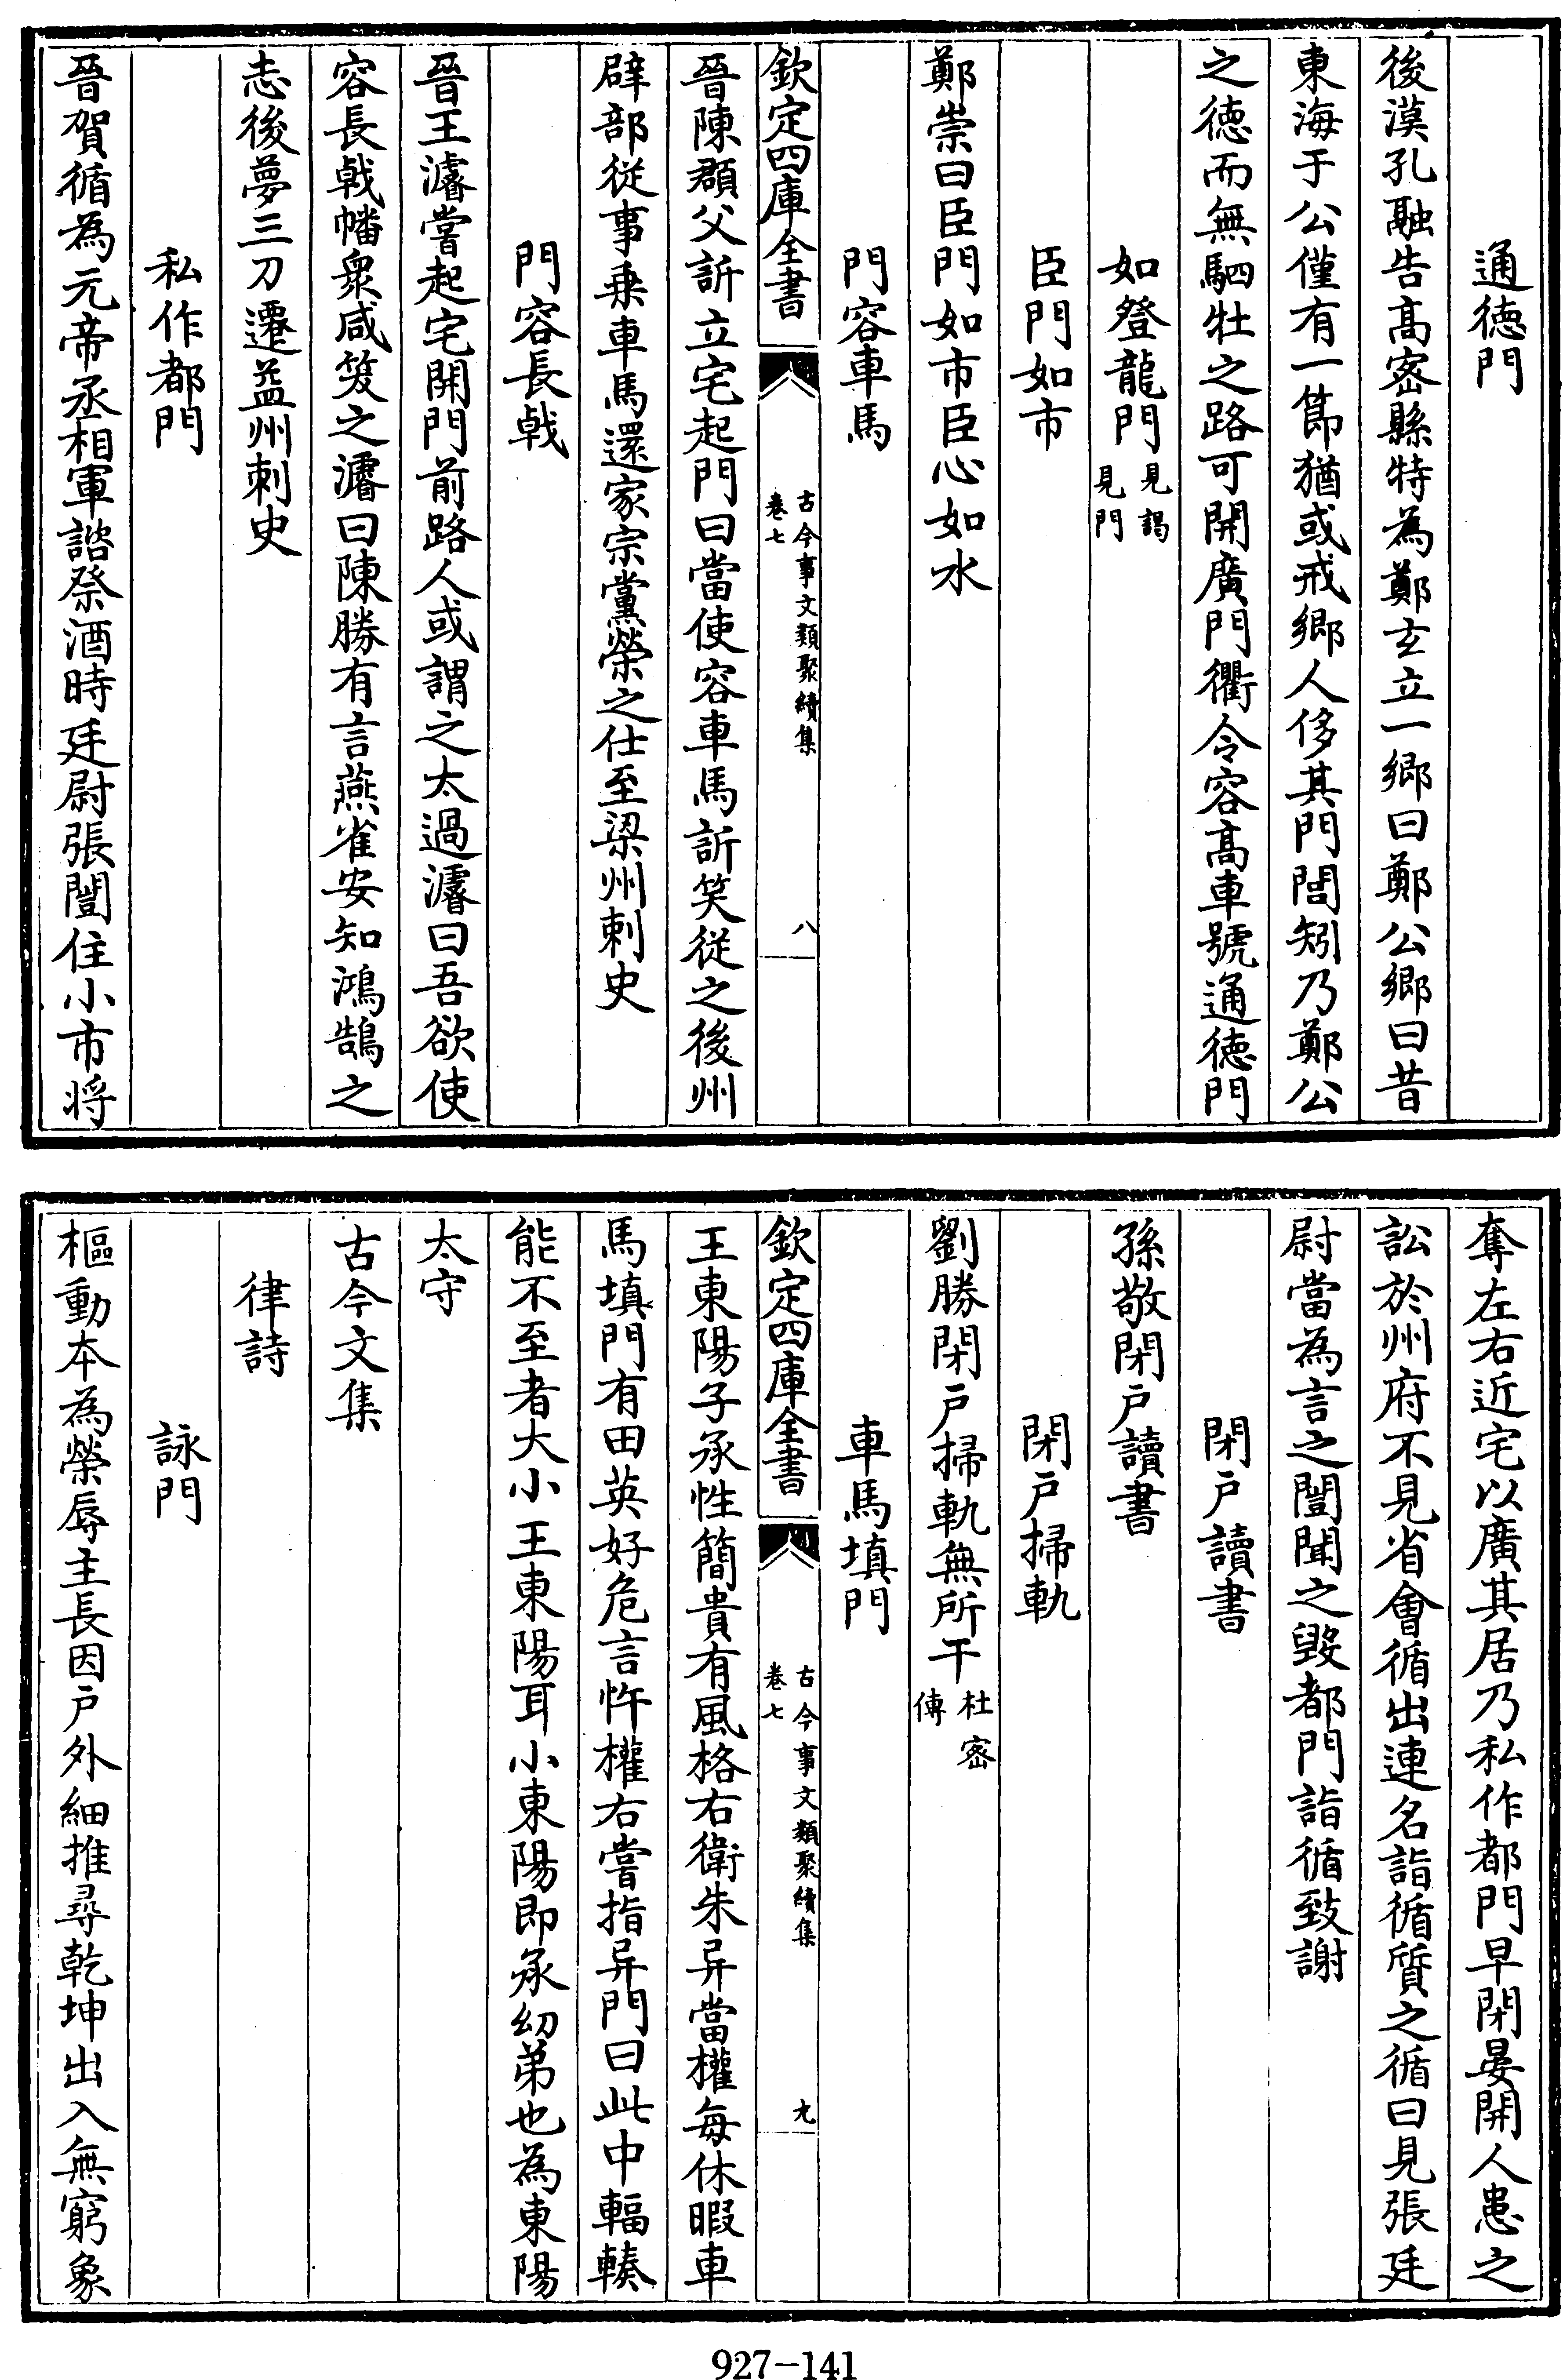 通徳門
後漢孔融告高密縣特為鄭𤣥立一鄉曰鄭公鄉曰昔
東海于公僅有一節猶或戒鄉人侈其門閭矧乃鄭公
之徳而無駟牡之路可開廣門衢令容高車號通徳門
如登龍門見謁見門
臣門如市
鄭崇曰臣門如市臣心如水
門容車馬
欽定四庫全書
古今事文類聚續集
卷七
八
晉陳頵父訢立宅起門曰當使容車馬訢笑從之後州
辟部從事乗車馬還家宗黨榮之仕至梁州刺史
門容長戟
晉王濬嘗起宅開門前路人或謂之太過濬曰吾欲使
容長戟幡衆咸笑之濬曰陳勝有言燕雀安知鴻鵠之
志後夢三刀遷益州刺史
私作都門
晉賀循為元帝丞相軍諮祭酒時廷尉張闓住小市将
奪左右近宅以廣其居乃私作都門早閉晏開人患之
訟於州府不見省㑹循出連名詣循質之循曰見張廷
尉當為言之闓聞之毀都門詣循致謝
閉户讀書
孫敬閉户讀書
閉户掃軌
劉勝閉户掃軌無所干杜密傳
車馬填門
欽定四庫全書
古今事文類聚續集
卷七
九
王東陽子承性簡貴有風格右衛朱异當權每休暇車
馬填門有田英好危言忤權右嘗指异門曰此中輻輳
能不至者大小王東陽耳小東陽即承幼弟也為東陽
太守
古今文集
律詩
詠門
樞動本為榮辱主長因户外細推尋乾坤出入無窮象
927-141